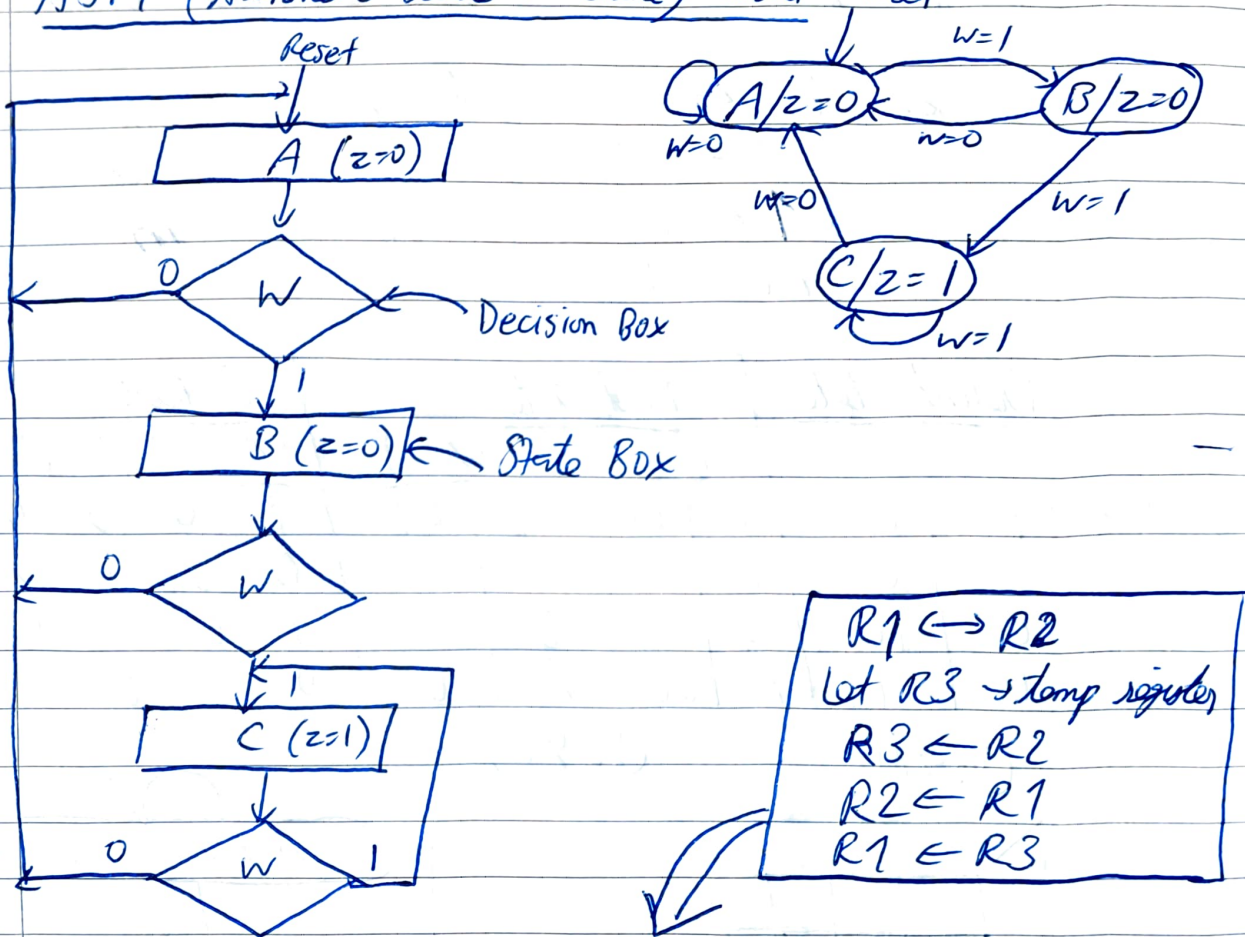 Reset
A (z=0)
0
W
Decision Box
1
B (z=0)
State Box
0
W
1
C (z=1)
0
W
1
W=1
A/z=0
B/z=0
W=0
W=0
W=0
W=1
C/z=1
W=1
R1 ↔ R2
Let R3 → temp register
R3 ← R2
R2 ← R1
R1 ← R3